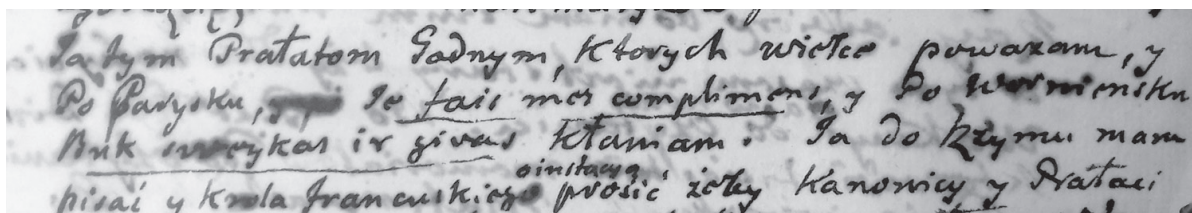 Ja tym Prałatom Godnym, Ktorych wielce powazam, y
Po Parysku, Je fais mes complimens, y Po Worniensku
Buk sweykas ir givas kłaniam. Ja do Rzymu mam
oinstacyą
pisać y Krola francuskiego prosić żeby Kanonicy y Prałaci